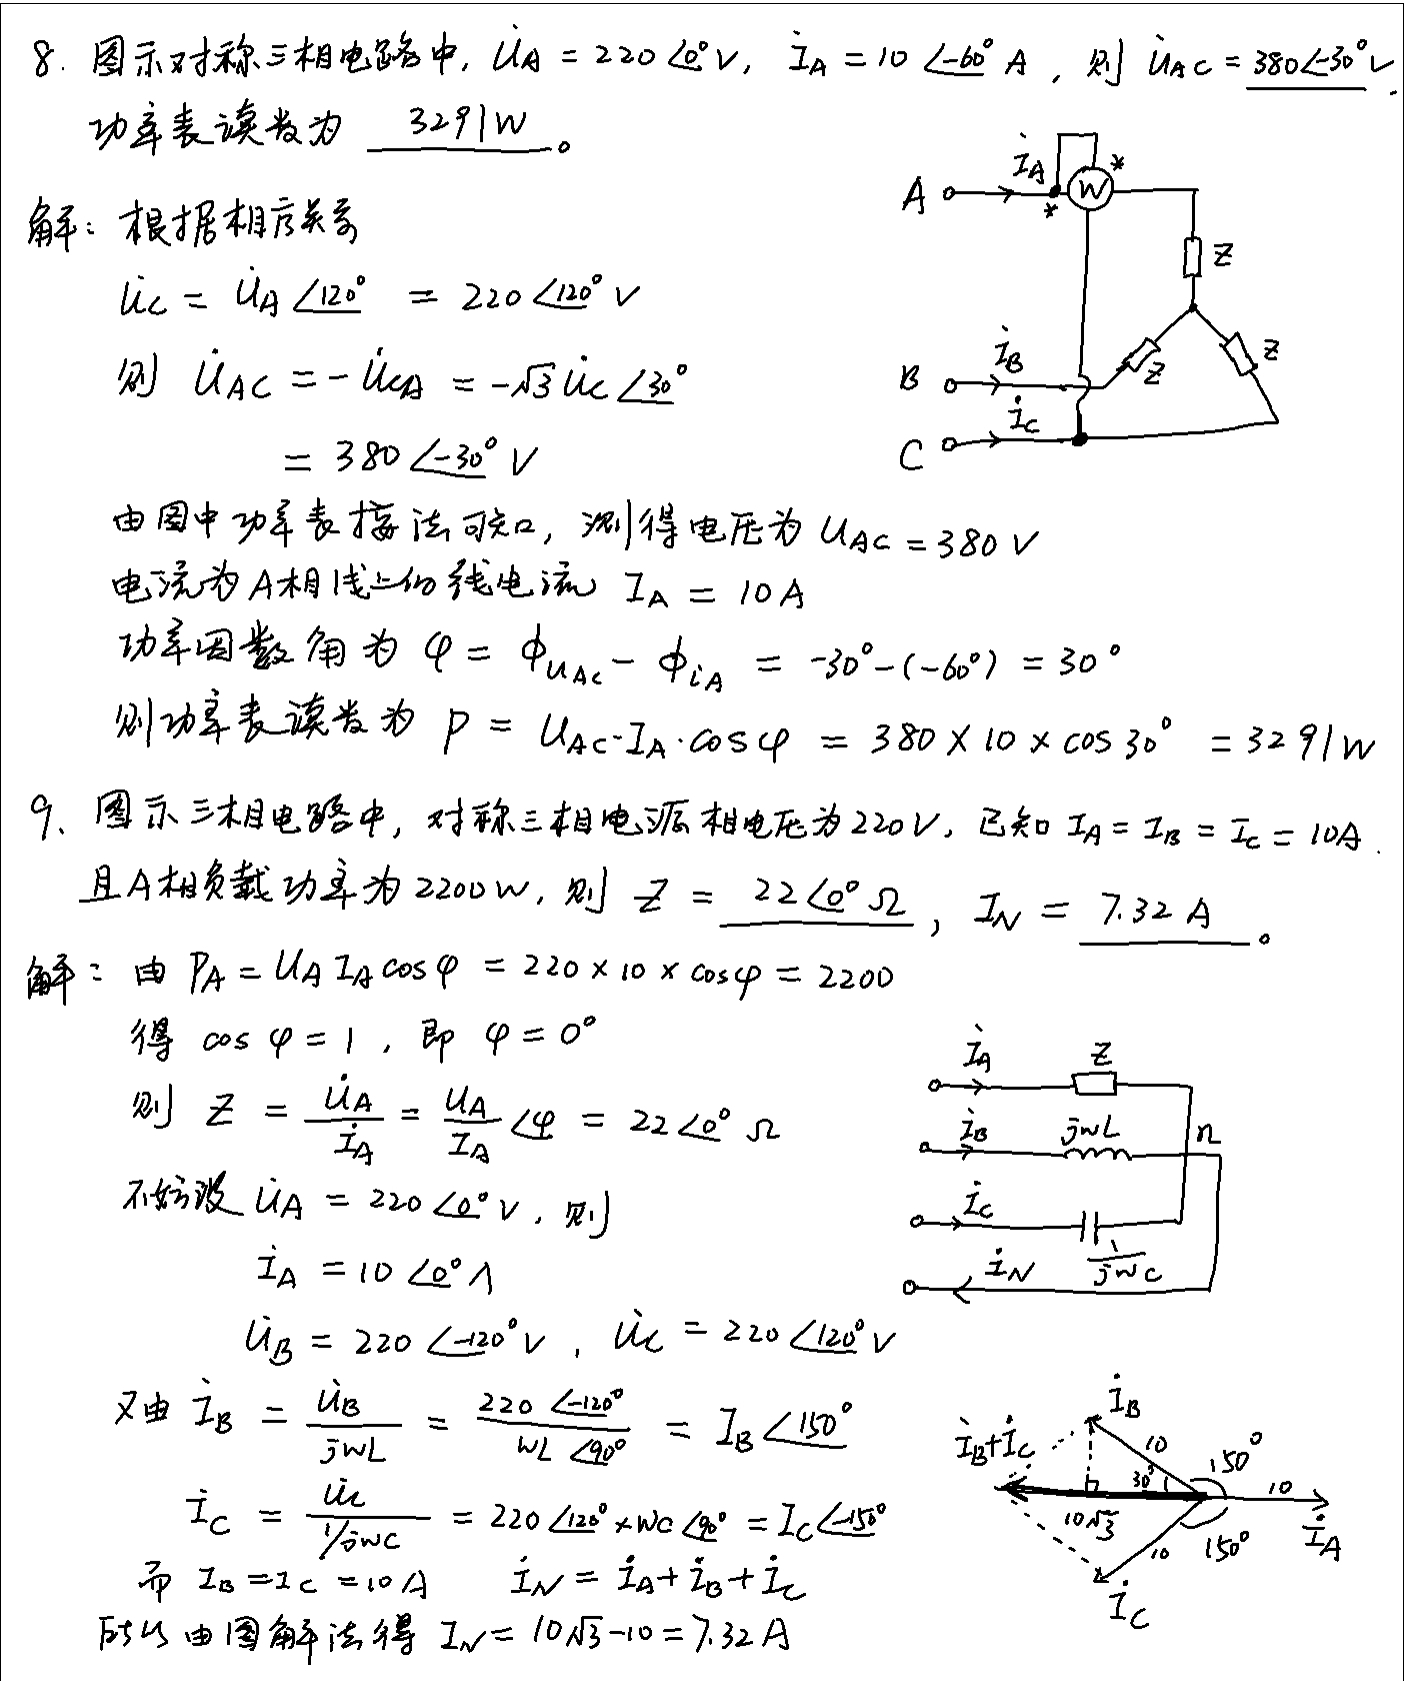 8. 图示对称三相电路中, U̇A = 220∠0° V, İA = 10∠-60° A, 则 U̇AC = 380∠-30° V.
功率表读数为 3291W 。
解: 根据相序关系
U̇C = U̇A∠120° = 220∠120° V
则 U̇AC = -U̇CA = -√3 U̇C∠30°
= 380∠-30° V
由图中功率表接法可知, 测得电压为 UAC = 380 V
电流为A相线上的线电流 IA = 10A
功率因数角为 φ = ϕuAC - ϕiA = -30° - (-60°) = 30°
则功率表读数为 P = UAC·IA·cosφ = 380 × 10 × cos30° = 3291W
A
İA
*
W
*
Z
B
İB
Z
Z
C
İC
9. 图示三相电路中, 对称三相电源相电压为220V, 已知 IA = IB = IC = 10A.
且A相负载功率为2200W, 则 Z = 22∠0° Ω, IN = 7.32 A 。
解: 由 PA = UAIAcosφ = 220 × 10 × cosφ = 2200
得 cosφ = 1, 即 φ = 0°
则 Z = U̇A/İA = UA/IA ∠φ = 22∠0° Ω
不妨设 U̇A = 220∠0° V, 则
İA = 10∠0° A
U̇B = 220∠-120° V, U̇C = 220∠120° V
又由 İB = U̇B/jωL = 220∠-120°/ωL∠90° = IB∠150°
İC = U̇C/(1/jωC) = 220∠120° × ωC∠90° = IC∠-150°
而 IB = IC = 10A İN = İA + İB + İC
所以由图解法得 IN = 10√3 - 10 = 7.32 A
İA
Z
İB
jωL
n
İC
1/jωC
İN
İB
İB+İC
10
30°
150°
10
10√3
İA
10
150°
İC